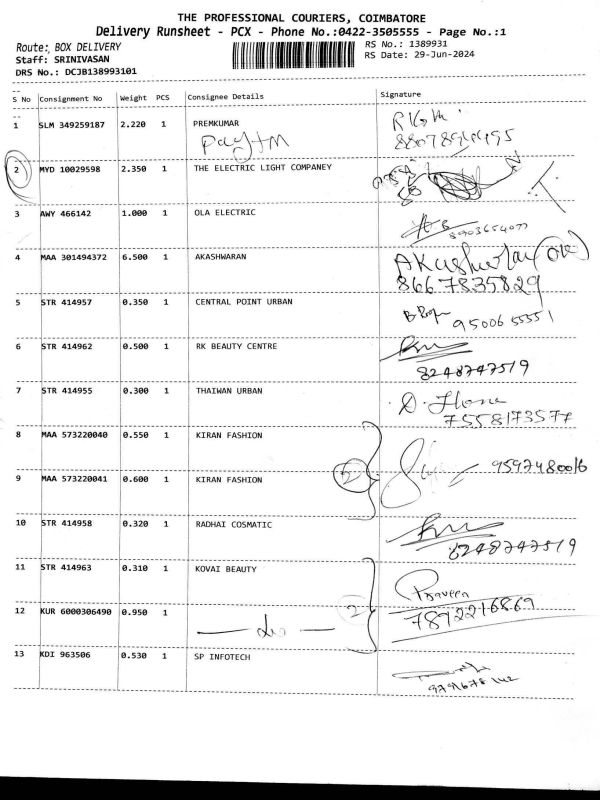 THE PROFESSIONAL COURIERS, COIMBATORE
Delivery Runsheet - PCX - Phone No.:0422-3505555 - Page No.:1
Route: BOX DELIVERY
RS No.: 1389931
Staff: SRINIVASAN
RS Date: 29-Jun-2024
DRS No.: DCJB138993101
S No Consignment No Weight PCS Consignee Details Signature
1 SLM 349259187 2.220 1 PREMKUMAR
paytm
2 MYD 10029598 2.350 1 THE ELECTRIC LIGHT COMPANEY
3 AWY 466142 1.000 1 OLA ELECTRIC
8903654077
4 MAA 301494372 6.500 1 AKASHWARAN
8667835829
5 STR 414957 0.350 1 CENTRAL POINT URBAN
9500655551
6 STR 414962 0.500 1 RK BEAUTY CENTRE
8248747519
7 STR 414955 0.300 1 THAIWAN URBAN
7558173577
8 MAA 573220040 0.550 1 KIRAN FASHION
2 9597480016
9 MAA 573220041 0.600 1 KIRAN FASHION
10 STR 414958 0.320 1 RADHAI COSMATIC
8248747519
11 STR 414963 0.310 1 KOVAI BEAUTY
Praveen
2 7892216869
12 KUR 6000306490 0.950 1
13 KDI 963506 0.530 1 SP INFOTECH